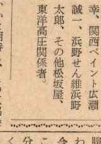 幸、関西ペイント広瀬
誠一、浜野せん維浜野
太郎、その他松坂屋、
東洋高圧関係者